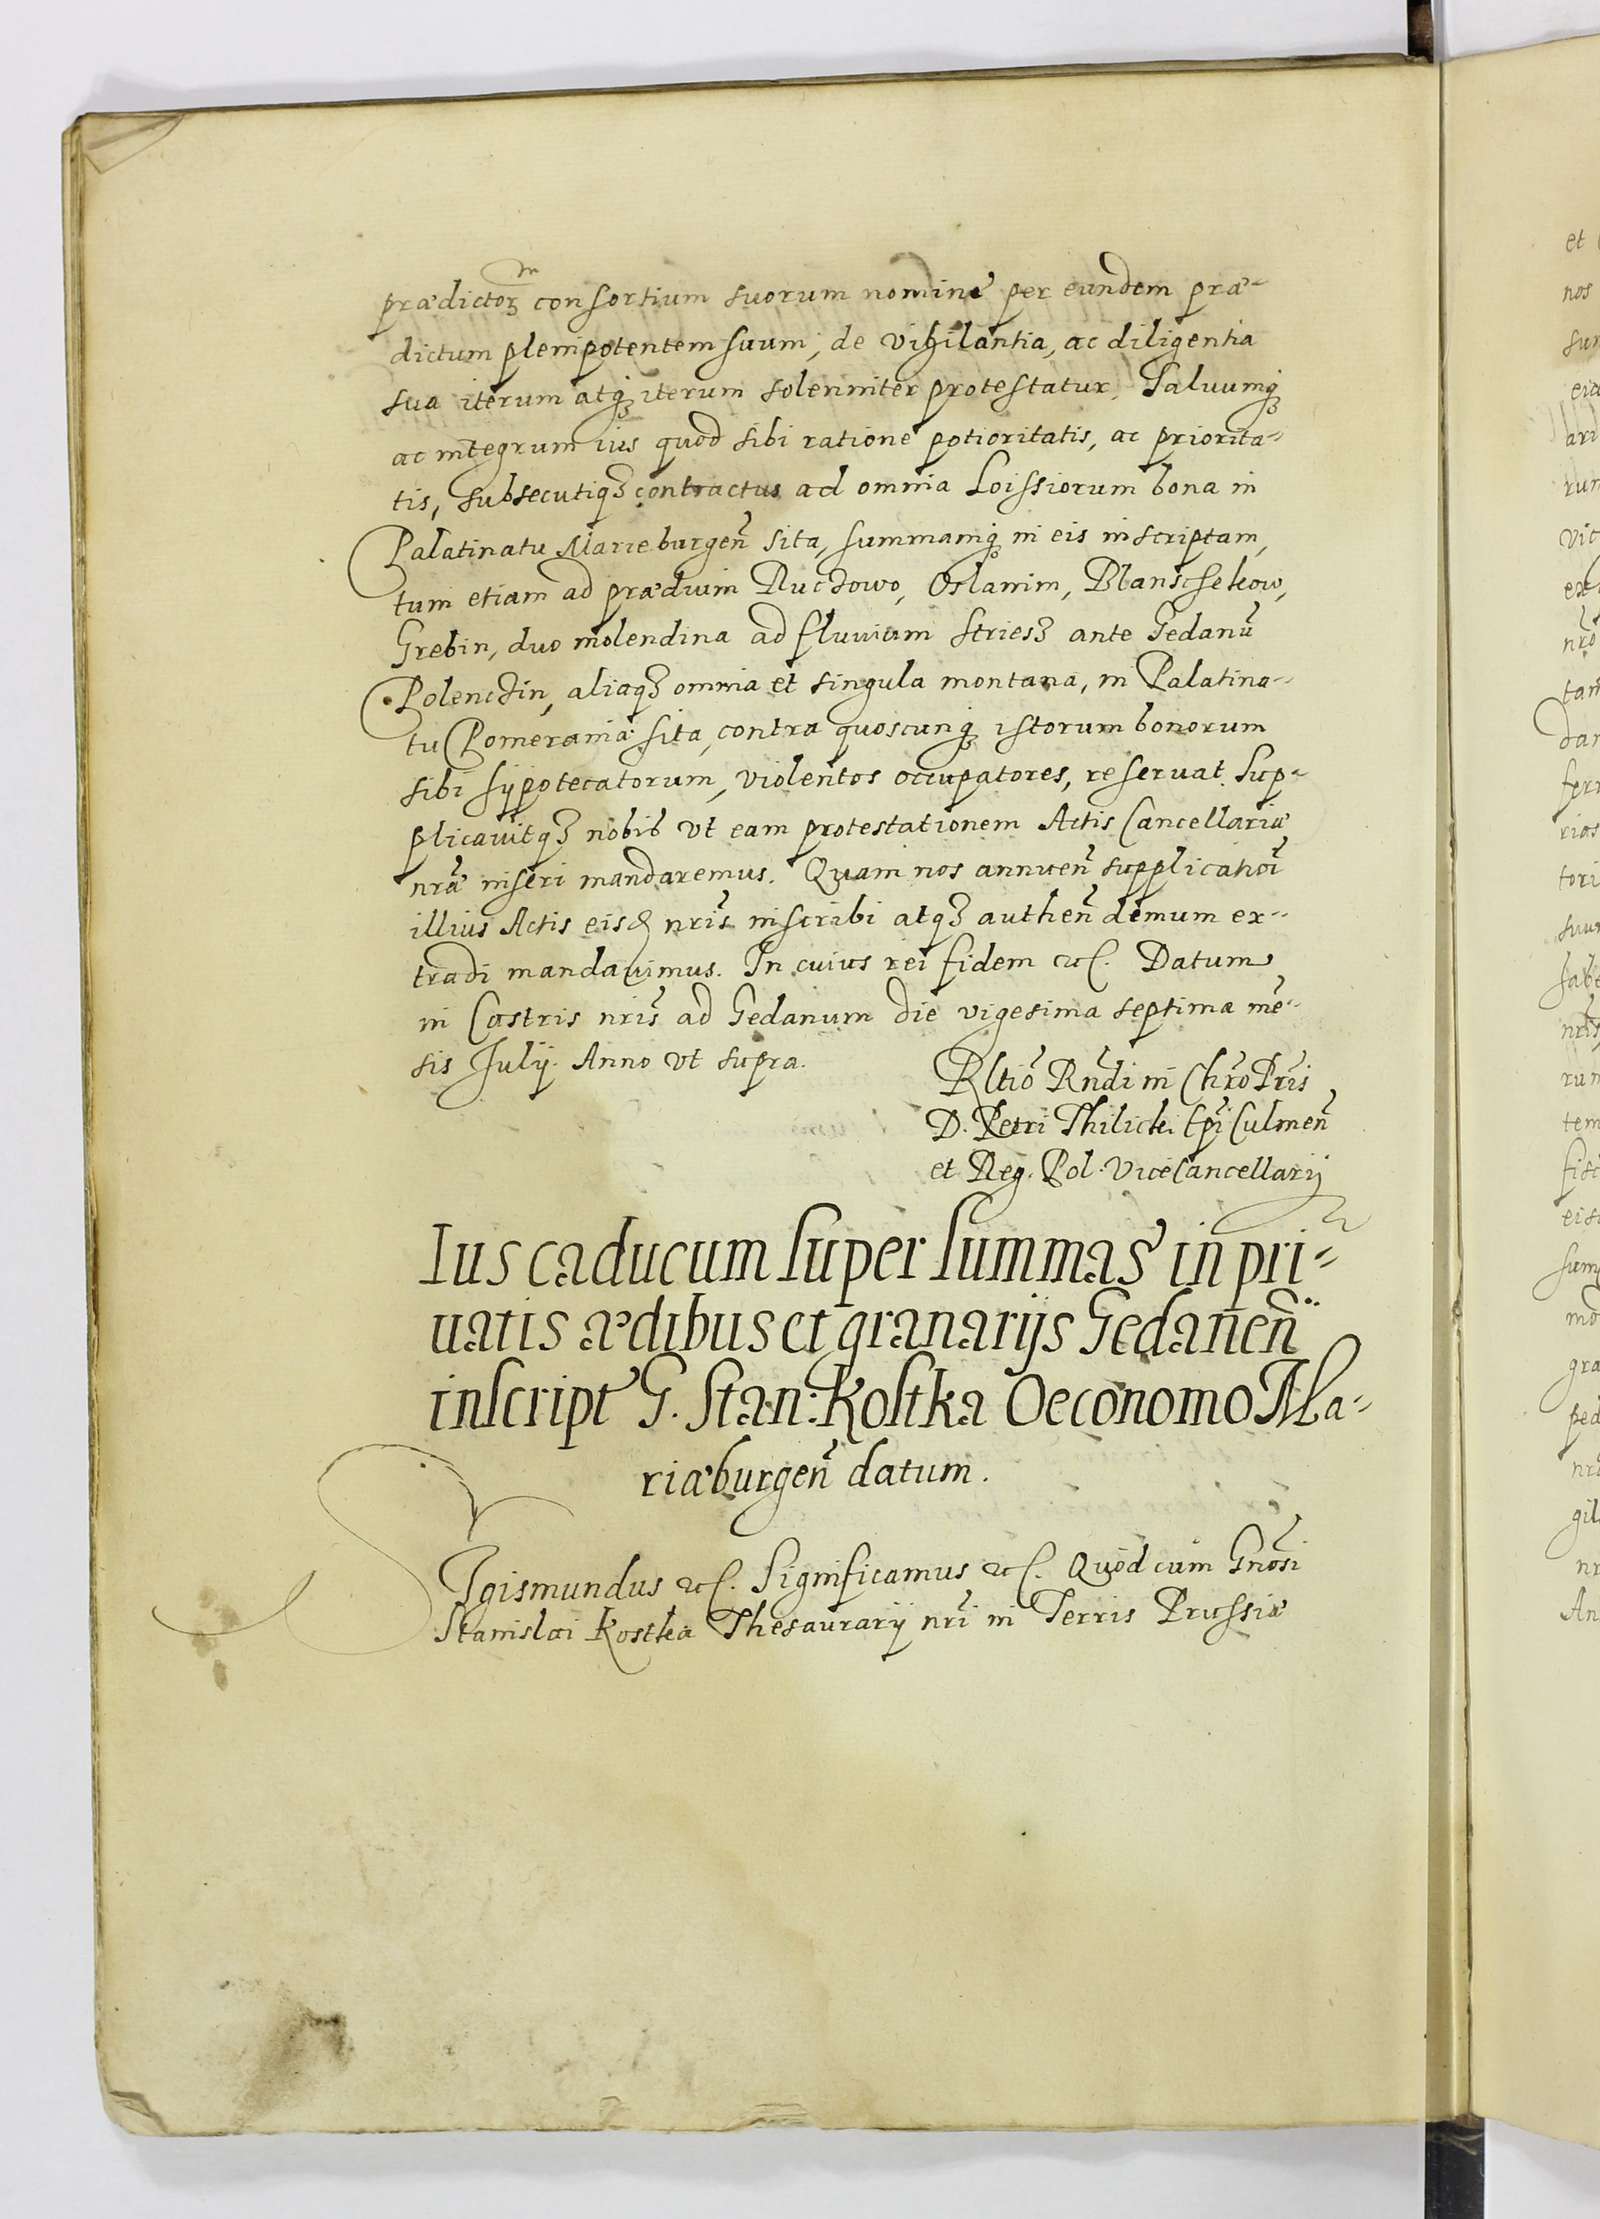 prædictoꝝ consortium suorum nomine per eundem præ-
dictum plenipotentem suum, de vigilantia, ac diligentia
sua iterum atqꝫ iterum solenniter protestatur, Saluumqꝫ
ac integrum ius quod sibi ratione potioritatis, ac priorita-
tis, subsecutiqꝫ contractus ad omnia Loissiorum bona in
Palatinatu Marieburgen̄ sita, summamqꝫ in eis inscriptam,
tum etiam ad prædium Oslanim,
Grebin, duo molendina ad fluuium Striesz ante Gedanū
Polenczin, aliaqꝫ omnia et singula montana, in Palatina-
tu Pomeraniæ sita, contra quoscunqꝫ istorum bonorum
sibi hypotecatorum, violentos occupatores, reseruat. Sup-
plicauitqꝫ nobis vt eam protestationem Actis Cancellariæ
nr̄æ inseri mandaremus. Quam nos annuen̄ supplicatiōi
illius Actis eisd nrīs inscribi atqꝫ authen̄ demum ex-
tradi mandauimus. In cuius rei fidem etc. Datum
in Castris nrīs ad Gedanum die vigesima septima mē-
sis Julij. Anno vt supra.
Rltiō Rn̄di in Chr̄o Pr̄is
D. Petri Thilicki Ep̄i Culmen̄
et Reg. Pol. ViceCancellarij
Ius caducum super summas in pri-
uatis ædibus et granarijs Gedanen̄
inscript G. Stan: Kostka Oeconomo Ma-
riæburgen̄ datum.
SIgismundus etc. Significamus etc. Quod cum Gnōsi
Stanislai Kostka Thesaurarij nr̄i in Terris Prussiæ